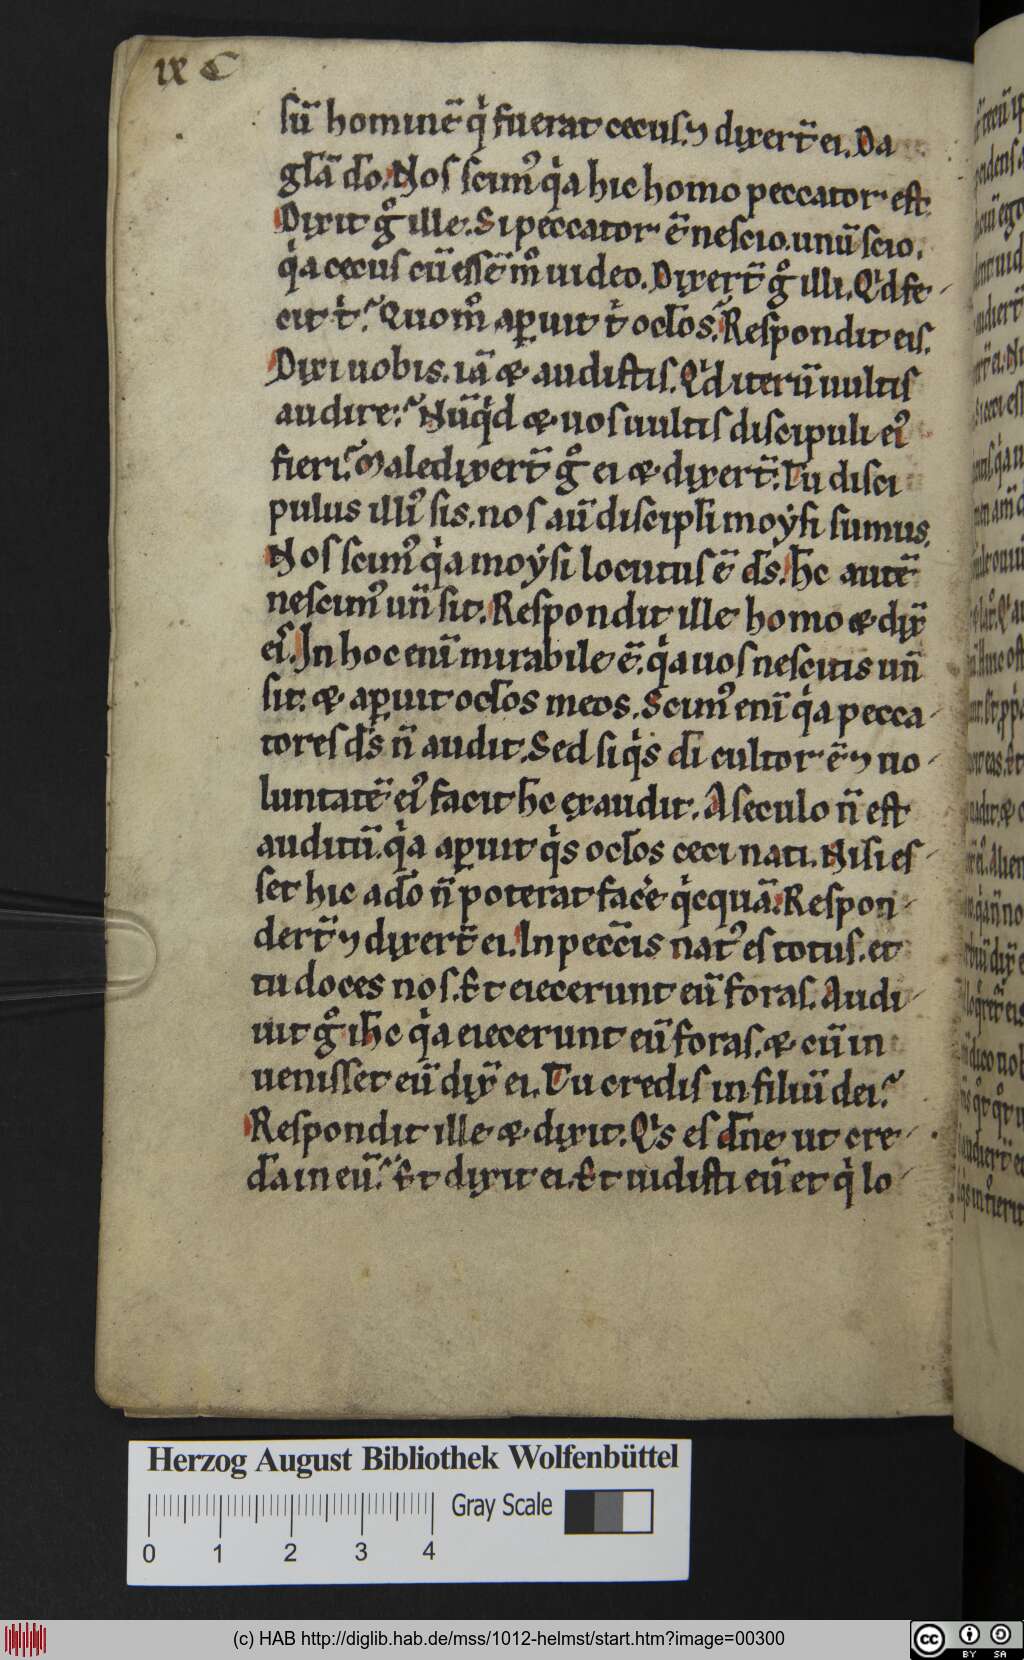 ix C
sū hominē q̇ fuerat cecus. ⁊ dixert̄ ei. Da
gl̄a dō. Nos scimꝰ q̇a hic homo peccator est.
Dixit g̊ ille. Si peccator ē nescio. unū scio.
q̇a cecus cū essē m̊ uideo. Dixert̄ g̊ illi. Qd̍ fe
cit t̍? Quom̊ aꝑuit t̍ ocl̄os? Respondit eis.
Dixi uobis. iā & audistis. Qd̍ iterū uultis
audire? Nūq̇d & uos uultis discipuli eiꝰ
fieri? Maledixert̄ g̊ ei & dixert̄. Tu disci
pulus illiꝰ sis. nos aū discipl̄i moẏsi sumus.
Nos scimꝰ q̇a moẏsi locutus ē ds̄. hc̄ autē
nescimꝰ un̄ sit. Respondit ille homo & dix̄
eis. In hoc eni̅ mirabile ē. q̇a uos nescitis un̄
sit. & aꝑuit ocl̄os meos. Scimꝰ eni̅ q̇a pecca
tores ds̄ n̄ audit. Sed si q̇s di̅ cultor ē ⁊ uo
luntatē eiꝰ facit hc̄ exaudit. A seculo n̄ est
auditū. q̇a aꝑuit q̇s ocl̄os ceci nati. Nisi es
set hic a dō n̄ poterat facē q̇cquā. Respon
dert̄ ⁊ dixert̄ ei. In pecc̄is natꝰ es totus. et
tu doces nos. Et eiecerunt eū foras. Audi
uit g̊ ihc̄ q̇a eiecerunt eū foras. & cū in
uenisset eū dix̄ ei. Tu credis in filiū dei?
Respondit ille & dixit. Q̍s es dn̄e ut cre
da̅ in eū? Et dixit ei. Et uidisti eū et q̇ lo
Herzog August Bibliothek Wolfenbüttel
Gray Scale
0 1 2 3 4
(c) HAB http://diglib.hab.de/mss/1012-helmst/start.htm?image=00300
cc BY SA